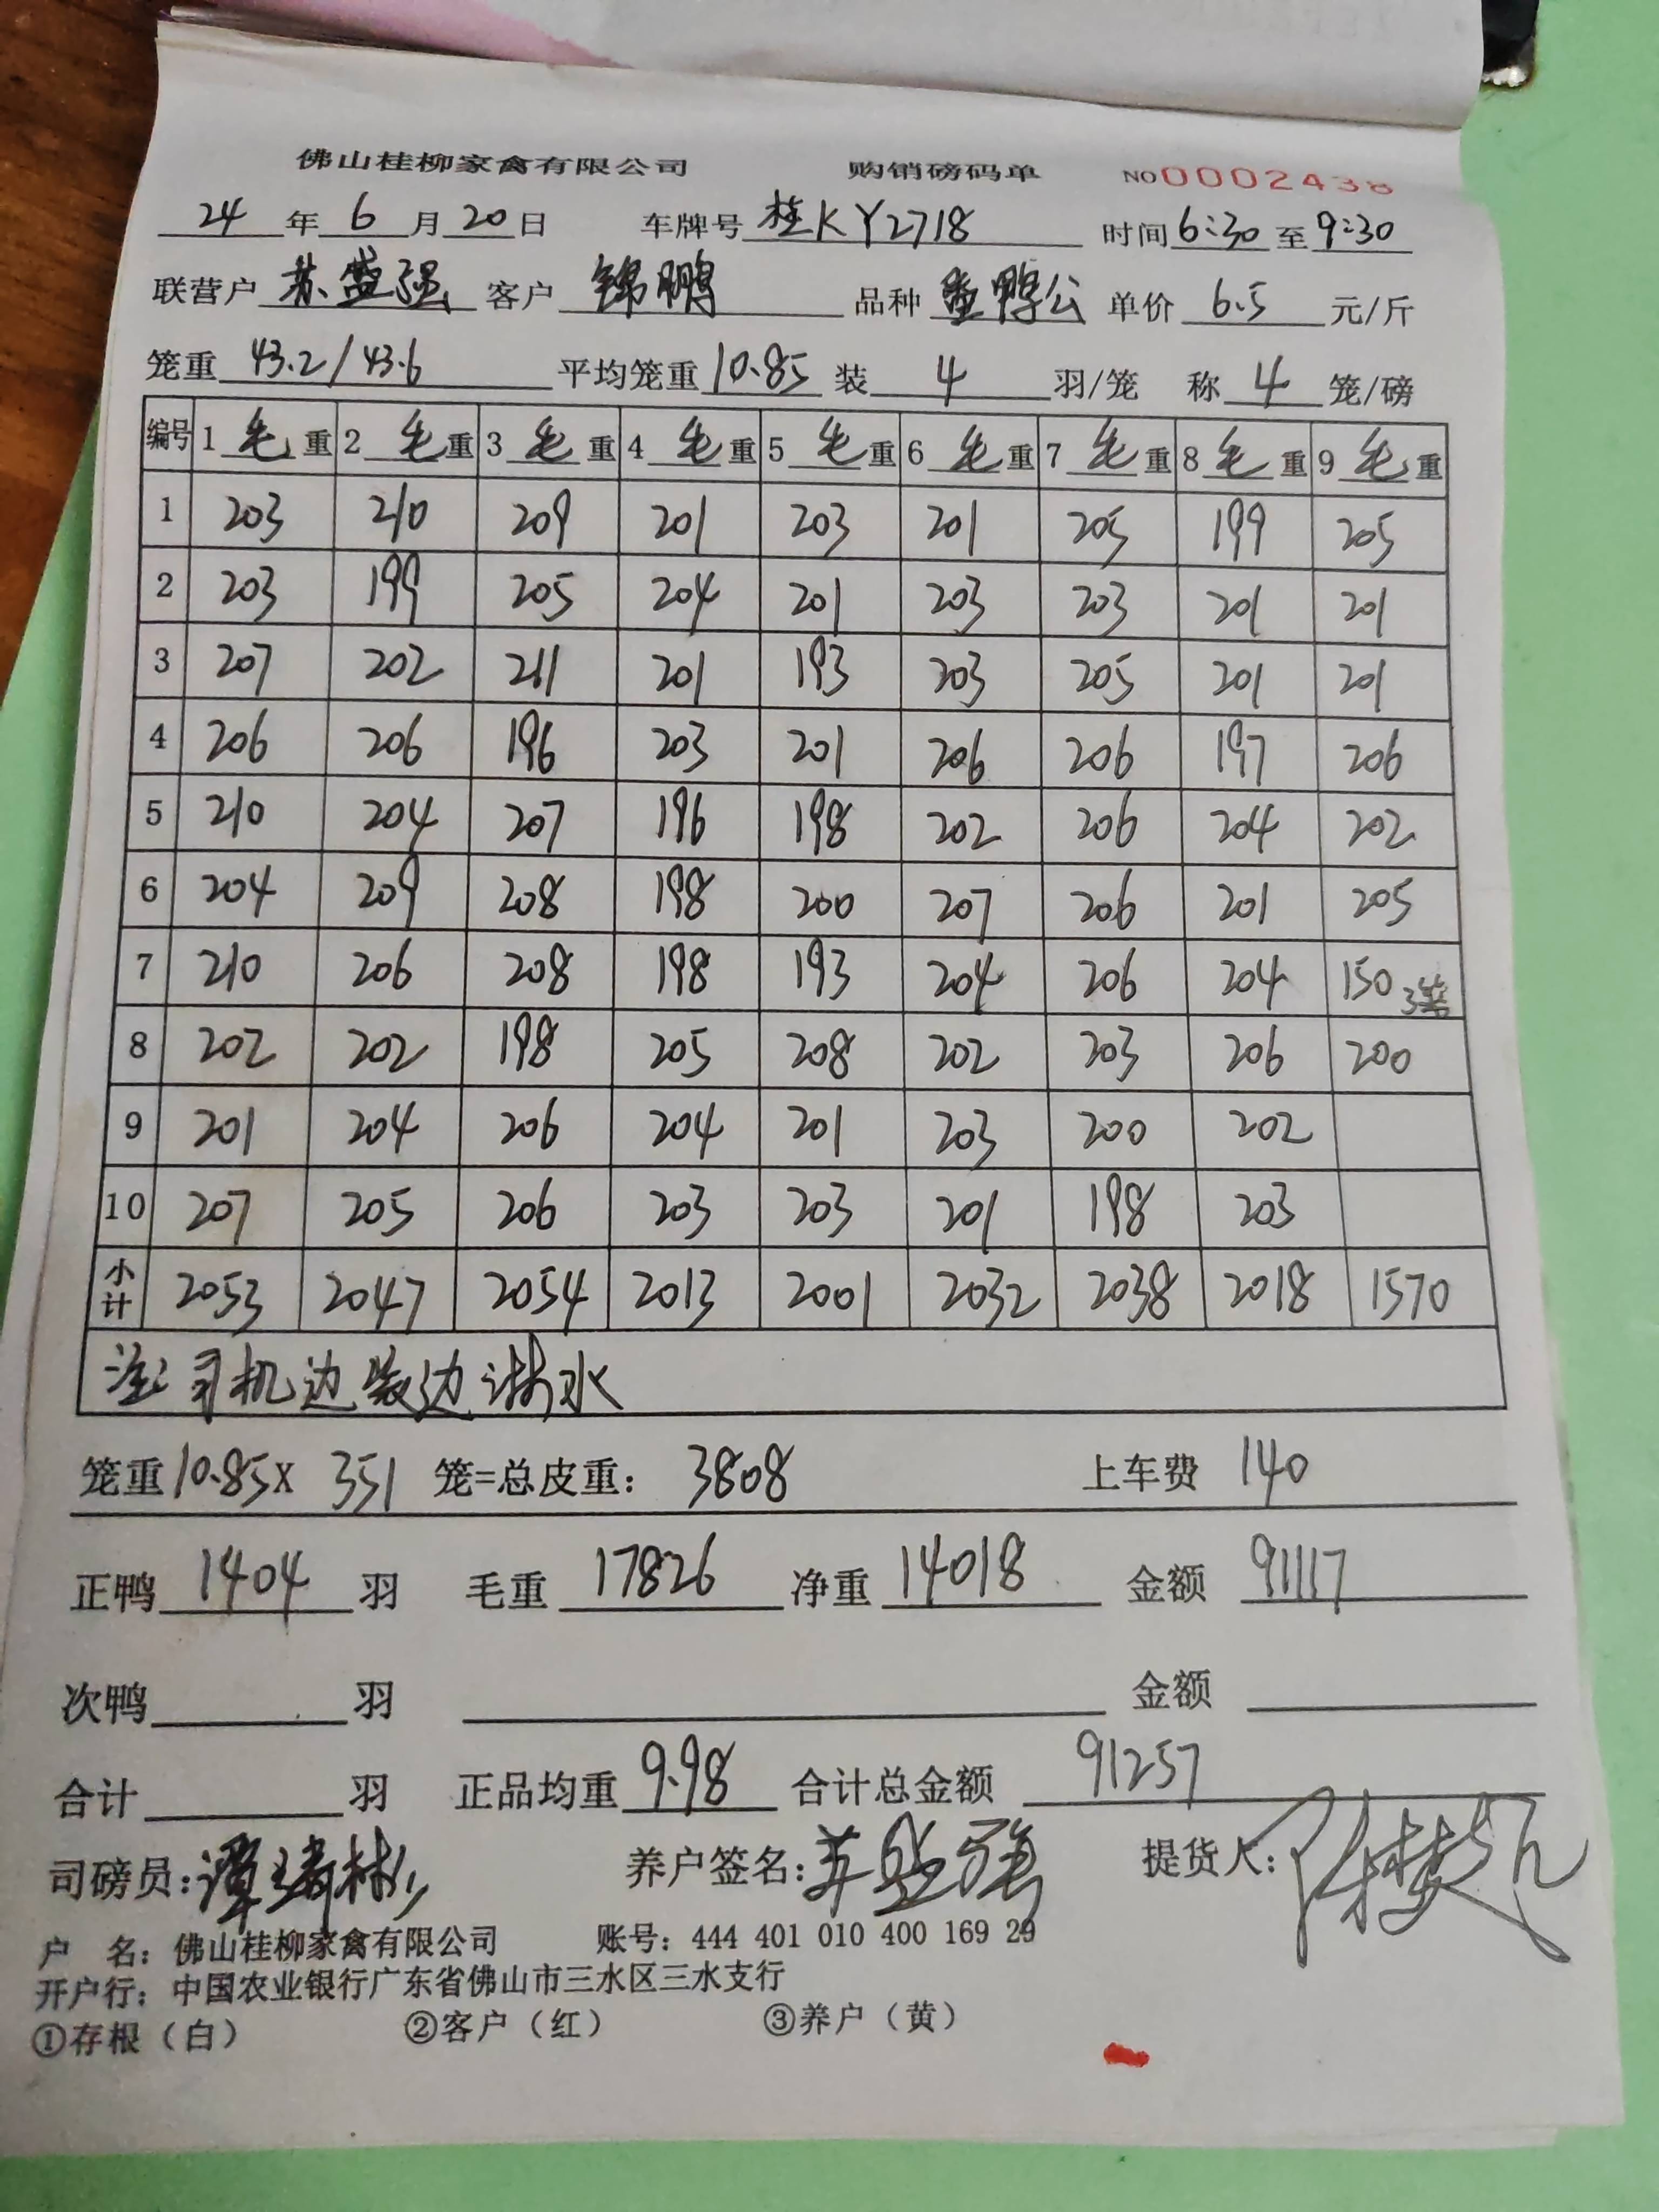 佛山桂柳家禽有限公司 购销磅码单 NO0002438
24 年 6 月 20 日 车牌号 桂KY2718 时间 6:30 至 9:30
联营户 苏盛强 客户 锦鹏 品种 鸭公 单价 6.5 元/斤
笼重 43.2/43.6 平均笼重 10.85 装 4 羽/笼 称 4 笼/磅
编号 1 毛 重 2 毛 重 3 毛 重 4 毛 重 5 毛 重 6 毛 重 7 毛 重 8 毛 重 9 毛 重
1 203 210 209 201 203 201 205 199 205
2 203 199 205 204 201 203 203 201 201
3 207 202 211 201 193 203 205 201 201
4 206 206 196 203 201 206 206 197 206
5 210 204 207 196 198 202 206 204 202
6 204 209 208 198 200 207 206 201 205
7 210 206 208 198 193 204 206 204 150 3笼
8 202 202 198 205 208 202 203 206 200
9 201 204 206 204 201 203 200 202
10 207 205 206 203 203 201 198 203
小计 2053 2047 2054 2013 2001 2032 2038 2018 1570
注:司机边装边淋水
笼重 10.85X 351 笼=总皮重: 3808 上车费 140
正鸭 1404 羽 毛重 17826 净重 14018 金额 91117
次鸭 羽 金额
合计 羽 正品均重 9.98 合计总金额 91257
司磅员: 养户签名:苏盛强 提货人:
户 名: 佛山桂柳家禽有限公司 账号: 444 401 010 400 169 29
开户行: 中国农业银行广东省佛山市三水区三水支行
①存根(白) ②客户(红) ③养户(黄)